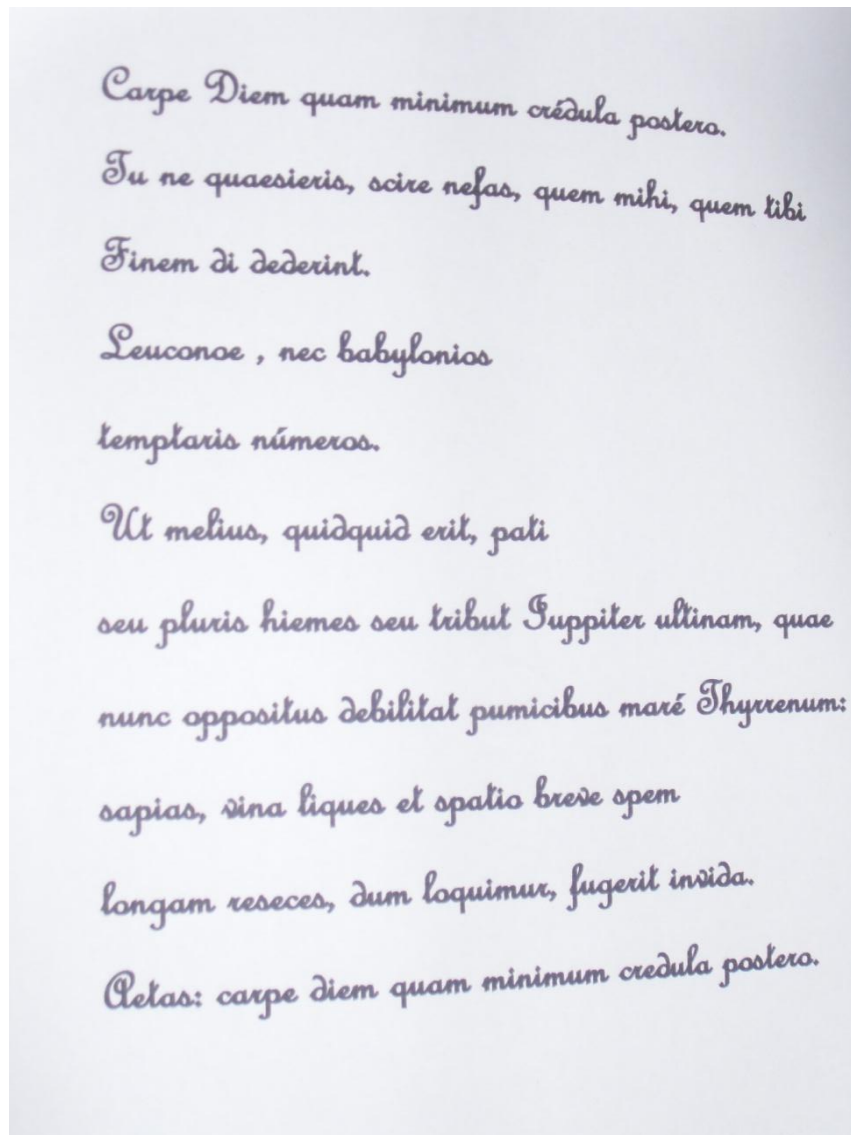 Carpe Diem quam minimum crédula postero.
Tu ne quaesieris, scire nefas, quem mihi, quem tibi
Finem di dederint.
Leuconoe , nec babylonios
temptaris números.
Ut melius, quidquid erit, pati
seu pluris hiemes seu tribut Iuppiter ultinam, quae
nunc oppositus debilitat pumicibus maré Thyrrenum:
sapias, vina liques et spatio breve spem
longam reseces, dum loquimur, fugerit invida.
Aetas: carpe diem quam minimum credula postero.